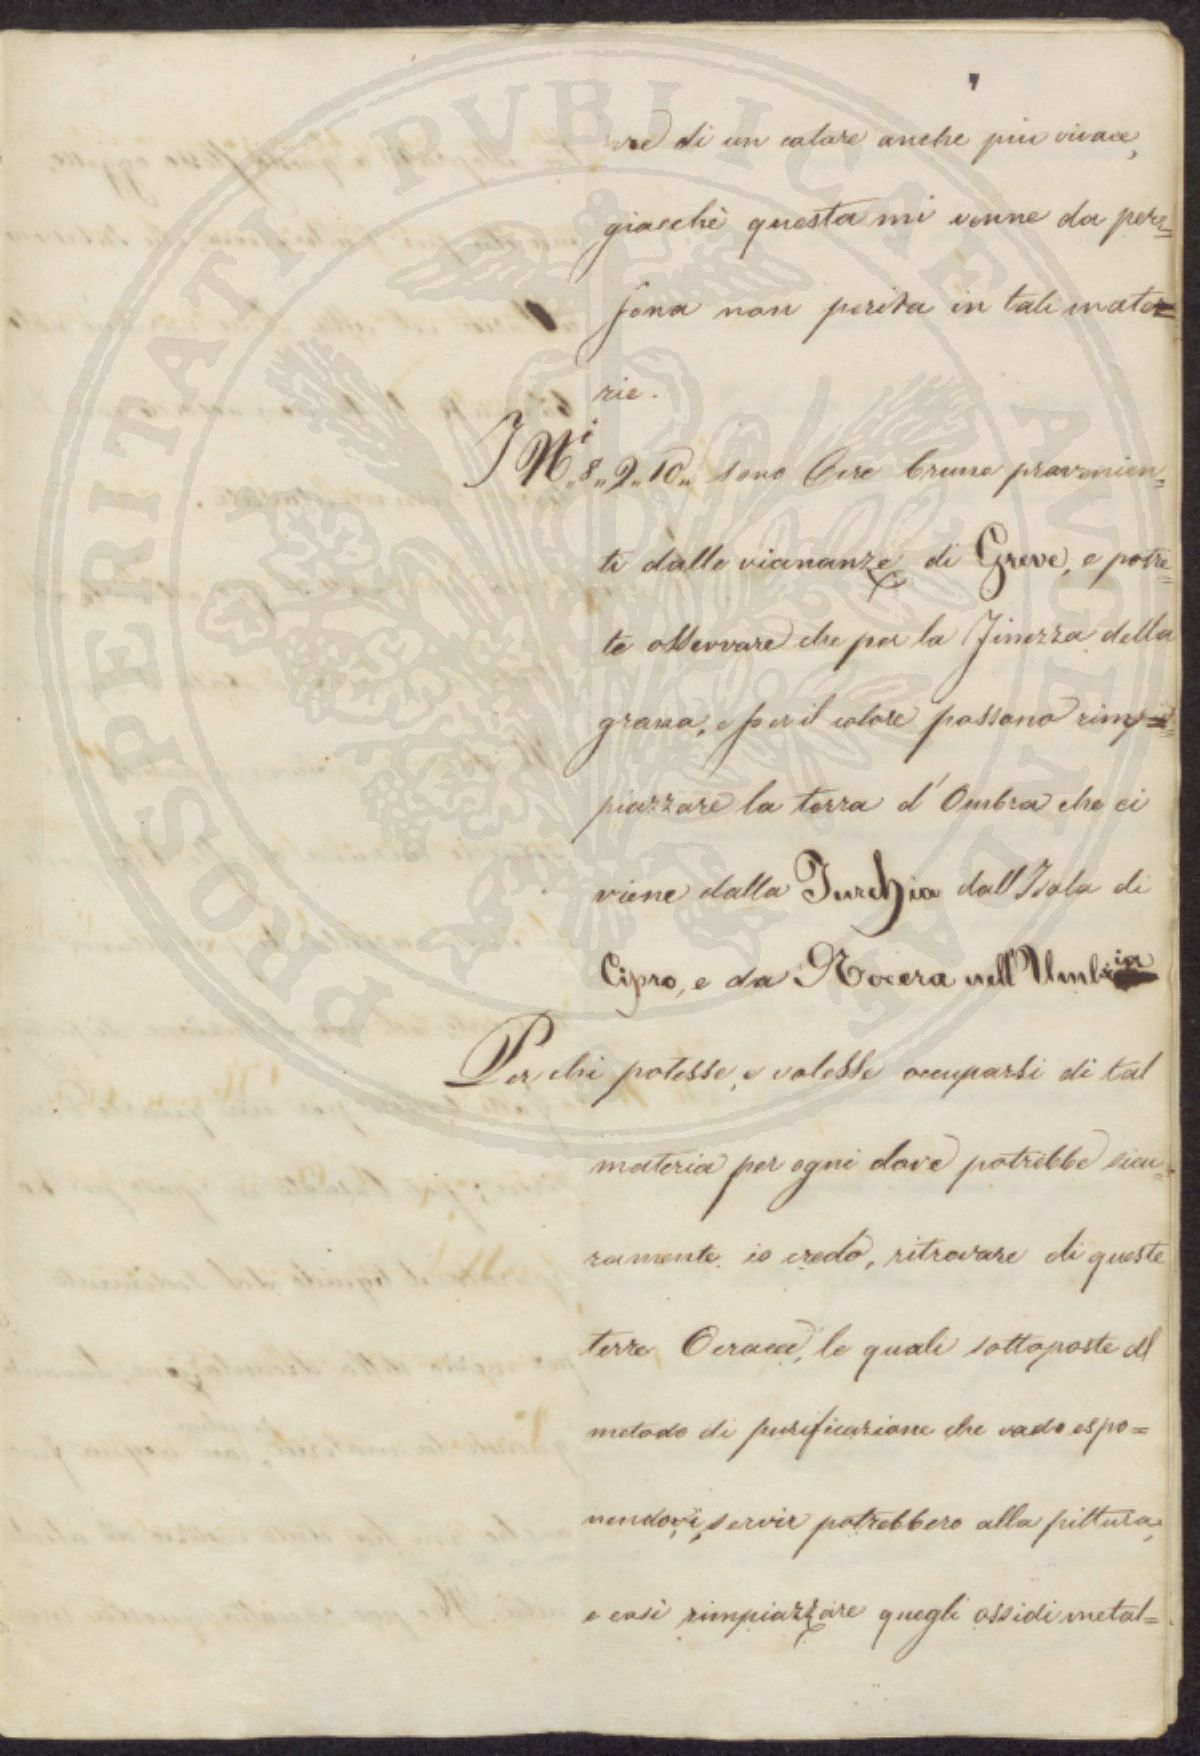 PROSPERITATI PVBLICAE AVGENDAE
re di un calore anche piu vivace,
giacchè questa mi venne da per=
sona non perita in tali mate=
rie.
I N.i 8,, 9,, 10,, sono Ocre brune provenien=
ti dalle vicinanze di Greve, e potre=
te osservare che per la finezza della
grana, e per il colore possono rim=
piazzare la terra d'Ombra che ci
viene dalla Turchia dall'Isola di
Cipro, e da Nocera nell'Umbria
Per chi potesse, e volesse occuparsi di tal
materia per ogni dove potrebbe sicu=
ramente io credo, ritrovare di queste
terre Ocracee, le quali sottoposte al
metodo di purificazione che vado espo=
nendovi, servir potrebbero alla pittura,
e così rimpiazzare quegli ossidi metal=